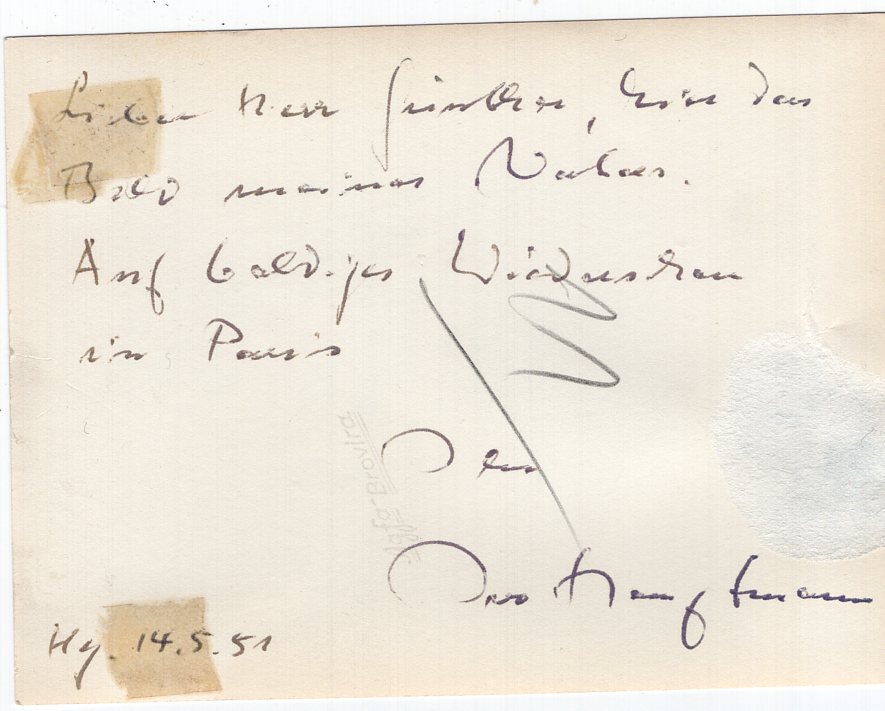 Lieber Herr Günther, hier das
Bild meines Vaters.
Auf baldiges Wiedersehen
in Paris
Ihr
Ivo Hauptmann
Hbg. 14.5.51
Agfa-Brovira